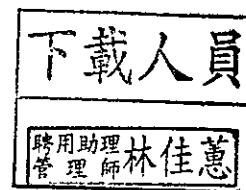 下載人員
聘用助理管理師林佳蕙